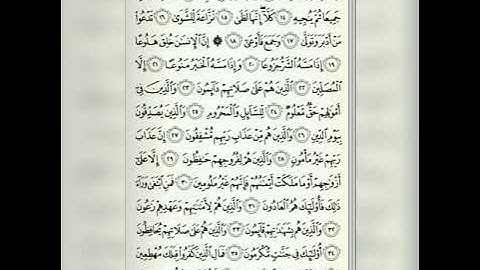 جَمِيعًا ثُمَّ يُنجِيهِ ١٤ كَلَّآ إِنَّهَا لَظَىٰ ١٥ نَزَّاعَةً لِّلشَّوَىٰ ١٦ تَدْعُواْ
مَنْ أَدْبَرَ وَتَوَلَّىٰ ١٧ وَجَمَعَ فَأَوْعَىٰٓ ١٨ ۞ إِنَّ ٱلْإِنسَٰنَ خُلِقَ هَلُوعًا
١٩ إِذَا مَسَّهُ ٱلشَّرُّ جَزُوعًا ٢٠ وَإِذَا مَسَّهُ ٱلْخَيْرُ مَنُوعًا ٢١ إِلَّا
ٱلْمُصَلِّينَ ٢٢ ٱلَّذِينَ هُمْ عَلَىٰ صَلَاتِهِمْ دَآئِمُونَ ٢٣ وَٱلَّذِينَ فِىٓ
أَمْوَٰلِهِمْ حَقٌّ مَّعْلُومٌ ٢٤ لِّلسَّآئِلِ وَٱلْمَحْرُومِ ٢٥ وَٱلَّذِينَ يُصَدِّقُونَ
بِيَوْمِ ٱلدِّينِ ٢٦ وَٱلَّذِينَ هُم مِّنْ عَذَابِ رَبِّهِم مُّشْفِقُونَ ٢٧ إِنَّ عَذَابَ
رَبِّهِمْ غَيْرُ مَأْمُونٍ ٢٨ وَٱلَّذِينَ هُمْ لِفُرُوجِهِمْ حَٰفِظُونَ ٢٩ إِلَّا عَلَىٰٓ
أَزْوَٰجِهِمْ أَوْ مَا مَلَكَتْ أَيْمَٰنُهُمْ فَإِنَّهُمْ غَيْرُ مَلُومِينَ ٣٠ فَمَنِ ٱبْتَغَىٰ وَرَآءَ
ذَٰلِكَ فَأُوْلَٰٓئِكَ هُمُ ٱلْعَادُونَ ٣١ وَٱلَّذِينَ هُمْ لِأَمَٰنَٰتِهِمْ وَعَهْدِهِمْ رَٰعُونَ
٣٢ وَٱلَّذِينَ هُم بِشَهَٰدَٰتِهِمْ قَآئِمُونَ ٣٣ وَٱلَّذِينَ هُمْ عَلَىٰ صَلَاتِهِمْ يُحَافِظُونَ
٣٤ أُوْلَٰٓئِكَ فِى جَنَّٰتٍ مُّكْرَمُونَ ٣٥ فَمَالِ ٱلَّذِينَ كَفَرُواْ قِبَلَكَ مُهْطِعِينَ